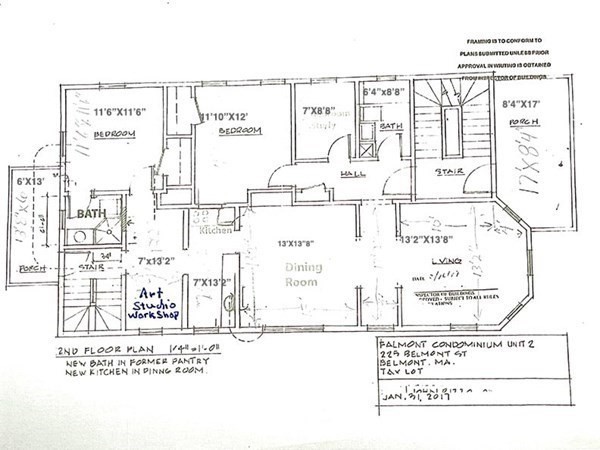 FRAMING IS TO CONFORM TO
PLANS SUBMITTED UNLESS PRIOR
APPROVAL IN WRITING IS OBTAINED
FROM INSPECTOR OF BUILDINGS
11'6"X11'6"
BEDROOM
11'10"X12'
BEDROOM
7'X8'8"
6'4"x8'8"
BATH
8'4"X17'
PORCH
17'X8'4"
STAIR
HALL
6'X13'
PORCH
BATH
STAIR
7'x13'2"
Art
Studio
Workshop
Kitchen
7'X13'2"
13'X13'8"
Dining
Room
13'2"X13'8"
LIVING
2ND FLOOR PLAN 1/4"=1'-0"
NEW BATH IN FORMER PANTRY
NEW KITCHEN IN DINNG ROOM.
PALMONT CONDOMINIUM UNIT 2
225 BELMONT ST
BELMONT. MA.
TAX LOT
JAN. 31, 2017